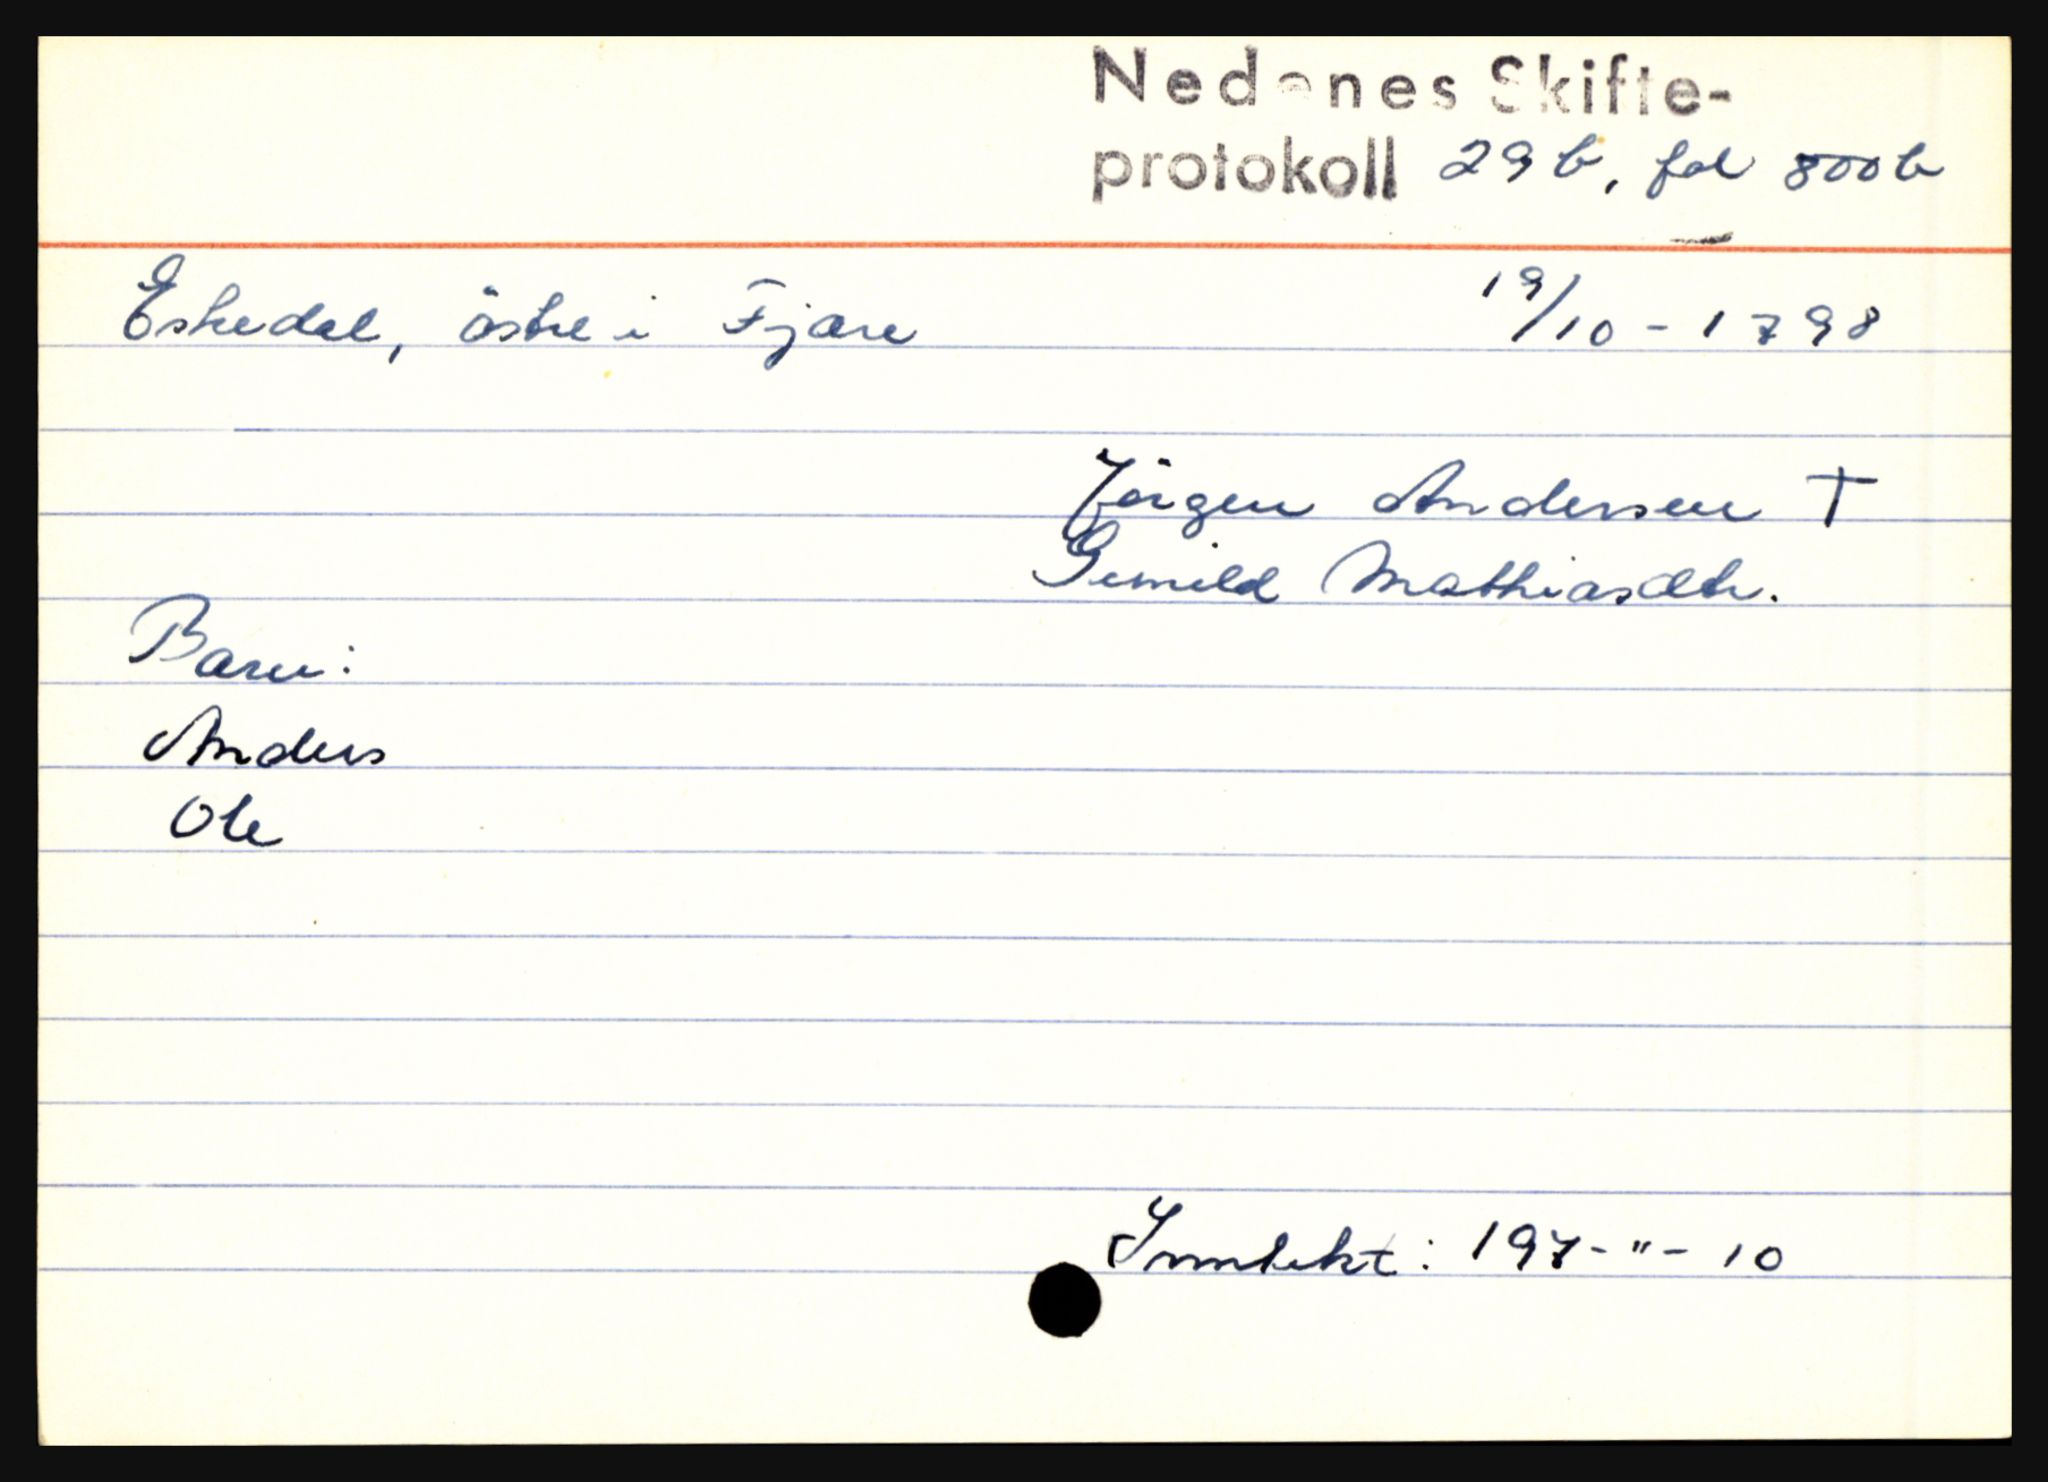 Nedenes Skifte-
protokoll 29 b, fol 800 b
Eskedal, östre i Fjære 19/10 - 1798
Jörgen Andersen †
Gunild Mathiasdtr.
Barn:
Anders
Ole
Inntekt: 197 - " - 10